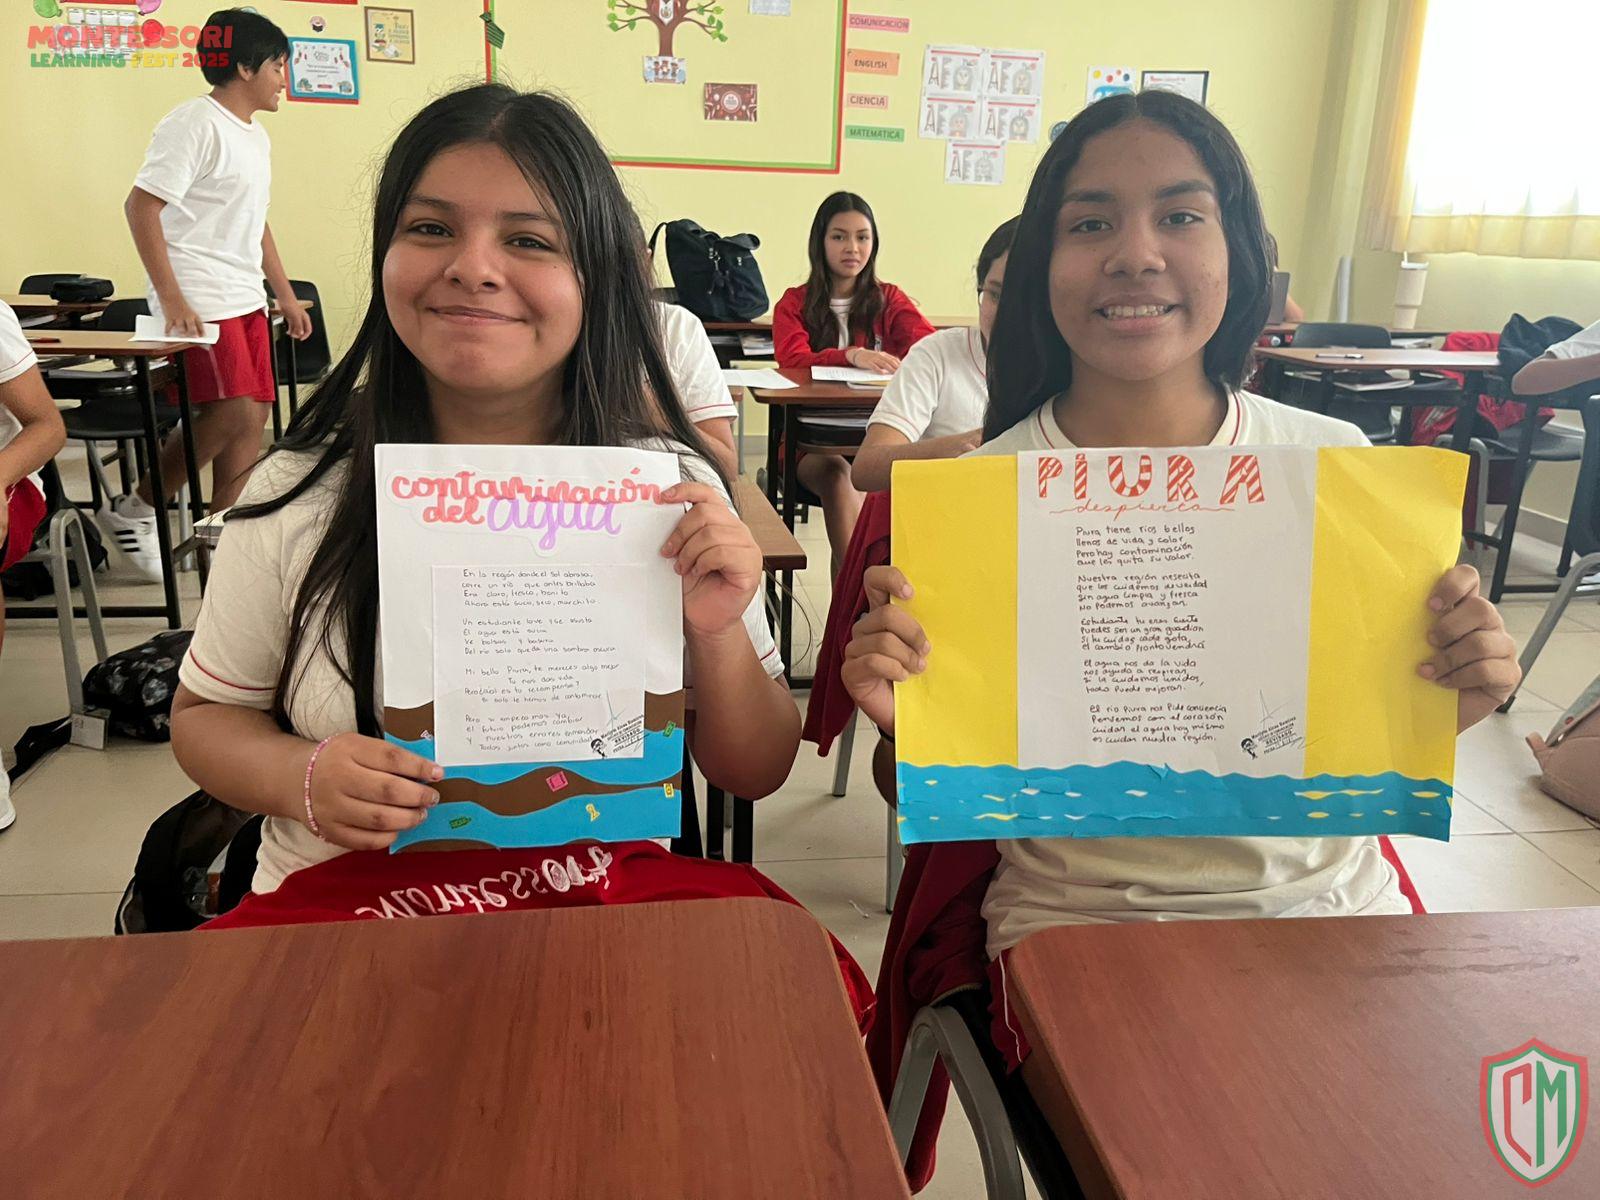 MONTESSORI
LEARNING FEST 2025
COMUNICACIÓN
ENGLISH
CIENCIA
MATEMÁTICA
contaminación
del agua
En la región donde el sol abrasa,
corre un río que antes brillaba
Era claro, fresco, bonito
Ahora está sucio, seco, marchito.
Un estudiante lo ve y se asusta
El agua está sucia
Ve bolsas y basura
Del río solo queda una sombra oscura
Mi bello Piura, te mereces algo mejor
Tu nos das vida
Pero ¿cuál es tu recompensa?
Si solo te hemos de contaminar
Pero si empezamos ya,
el futuro podemos cambiar
y nuestros errores enmendar
Todos juntos como comunidad
REVISADO
PIURA
despierta
Piura tiene ríos bellos
llenos de vida y color
Pero hay contaminación
que les quita su valor.
Nuestra región nesecita
que los cuidemos de verdad
Sin agua limpia y fresca
No podemos avanzar.
Estudiante tu eres fuerte
Puedes ser un gran guardion
Si tu cuidas cada gota,
el cambio pronto vendrá
El agua nos da la vida
nos ayuda a respirar
Si la cuidamos unidos,
todo puede mejorar.
El río Piura nos pide conciencia
Pensemos con el corazón
cuidar el agua hoy mismo
es cuidar nuestra región.
REVISADO
Montessori
CM